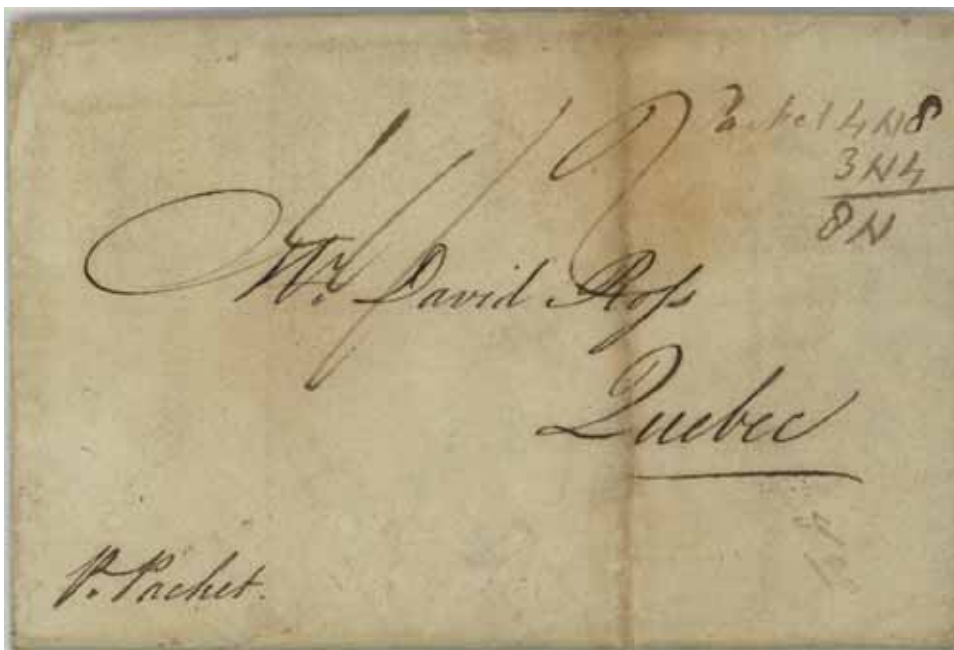 Packet 4 N 8
3 N 4
8 N
Mr. David Ross
Quebec
P. Packet.